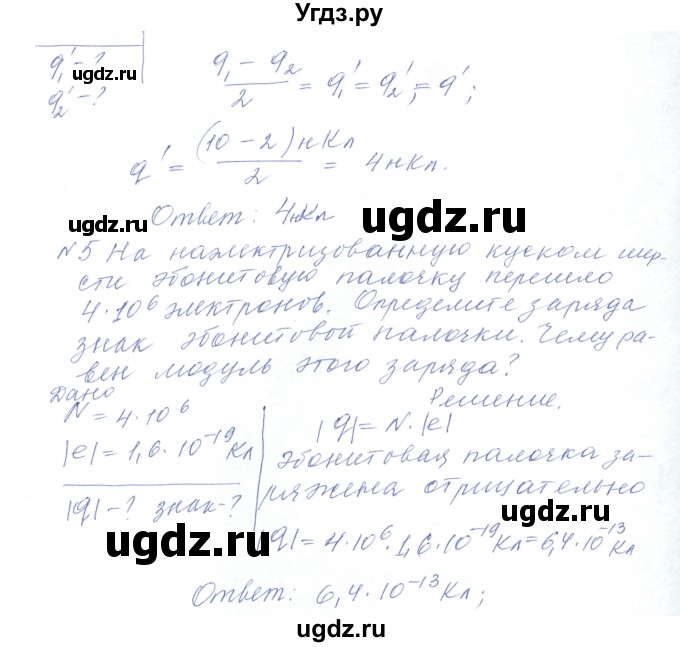 Угдз.ру
q₁' - ?
ugdz.ru
q₂' - ?
(q₁ - q₂)/2 = q₁' = q₂' = q';
q' = ((10 - 2) нКл)/2 = 4 нКл.
Ответ: 4 нКл
ugdz.ru
ugdz.ru
№5 На наэлектризованную куском шер-
сти эбонитовую палочку перешло
ugdz.ru
4·10⁶ электронов. Определите заряда
знак эбонитовой палочки. Чему ра-
вен модуль этого заряда?
Дано
Решение.
N = 4·10⁶
|q| = N·|e|
|e| = 1,6·10⁻¹⁹ Кл
эбонитовая палочка за-
ряжена отрицательно
|q| - ? знак - ?
ugdz.ru
ugdz.ru
|q| = 4·10⁶·1,6·10⁻¹⁹ Кл = 6,4·10⁻¹³ Кл
Ответ: 6,4·10⁻¹³ Кл;
ugdz.ru
ugdz.ru